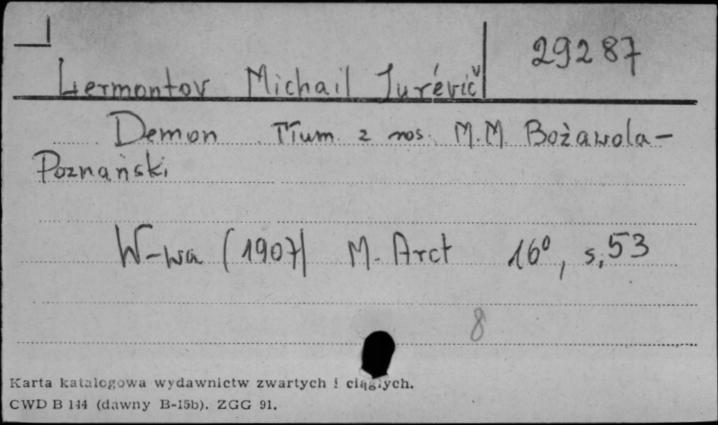 29287
Lermontov Michail Jurévič
Demon Tłum z ros. M.M. Bożawola-
Poznański
W-wa (1907) M. Arct 16°, s. 53
8
Karta katalogowa wydawnictw zwartych i ciągłych.
CWD B 144 (dawny B-15b). ZGG 91.